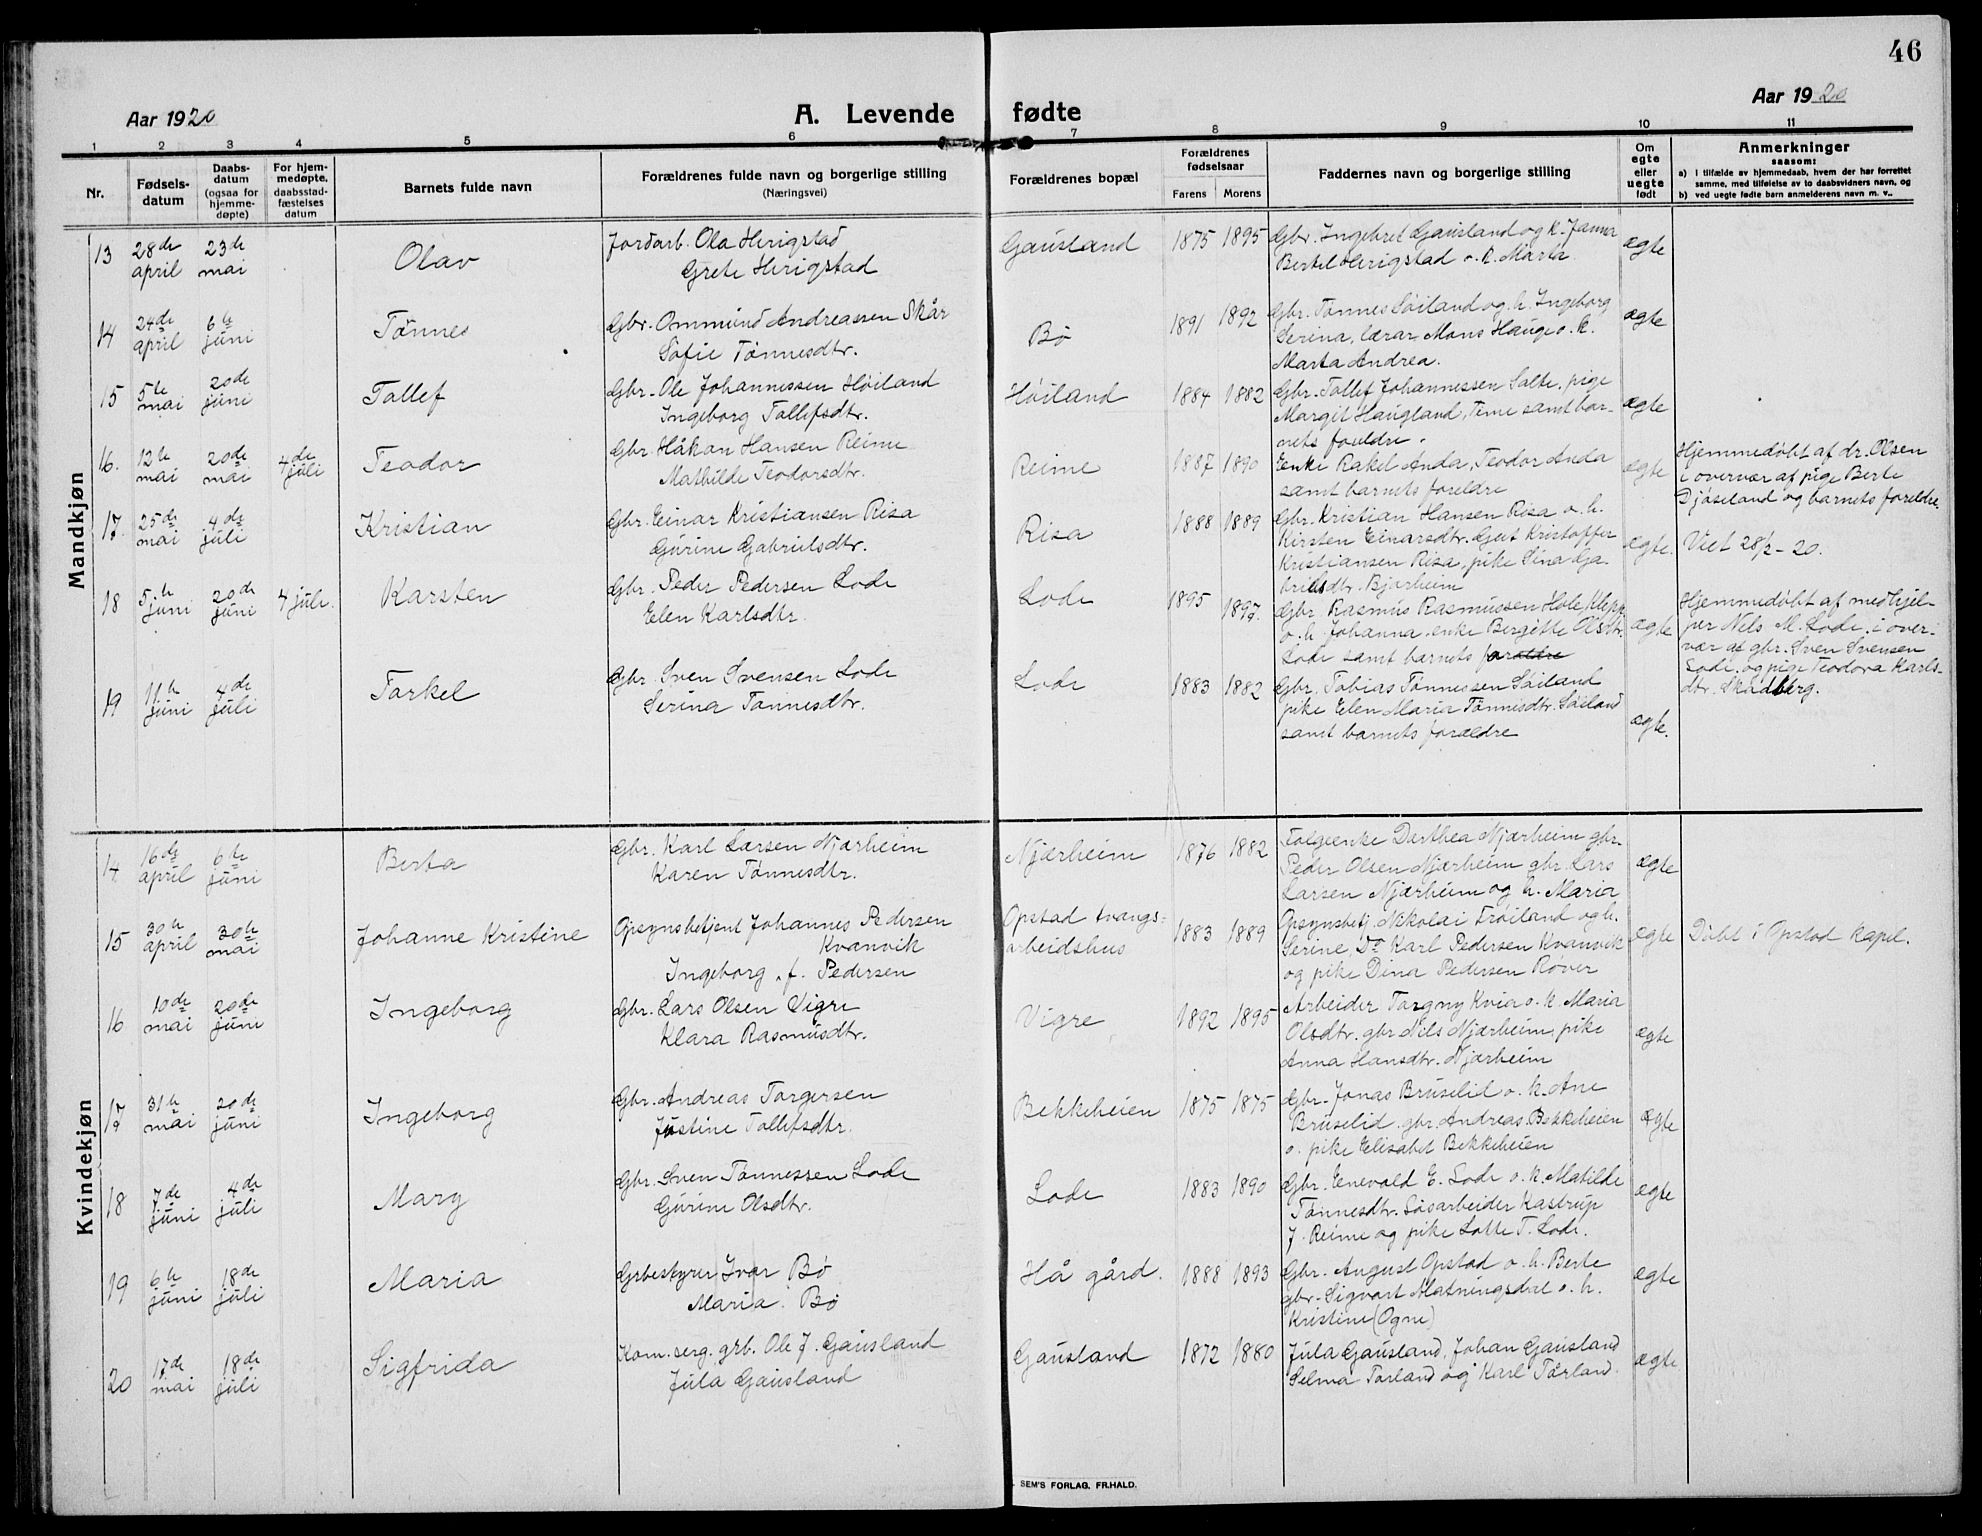 46
Aar 1920
A. Levende fødte
Aar 1920
1 2 3 4 5 6 7 8 9 10 11
Nr.
Fødsels-
datum
Daabs-
datum
(ogsaa for
hjemme-
døpte)
For hjem-
medøpte,
daabsstad-
fæstelses
datum
Barnets fulde navn
Forældrenes fulde navn og borgerlige stilling
(Næringsvei)
Forældrenes bopæl
Forældrenes
fødselsaar
Farens Morens
Faddernes navn og borgerlige stilling
Om
egte
eller
uegte
født
Anmerkninger
saasom:
a) i tilfælde av hjemmedaab, hvem der har forrettet
samme, med tilføielse av to daabsvidners navn, og
b) ved uegte fødte barn anmelderens navn m. v..
Mandkjøn
13 28de april 23de mai Olav
Jordarb. Ola Herigstad
Grete Herigstad
Gausland 1875 1895
Gbr. Ingebret Gausland og k. Janna
Bertel Herigstad o. k. Marta
ægte
14 24de april 6te juni Tønnes
Gbr. Ommund Andreassen Skår
Sofie Tønnesdtr.
Bø 1891 1892
Gbr. Tønnes Søiland og h. Ingeborg
Serina, lærar Mons Hauge o. k.
Marta Andrea.
ægte
15 5te mai 20de juni Tollef
Gbr. Ole Johannessen Høiland
Ingeborg Tollefsdtr.
Høiland 1884 1882
Gbr. Tollef Johannessen Salte, pige
Margit Haugland, Time samt bar-
nets foreldre.
ægte
16. 12te mai 20de mai 4de juli Teodor
Gbr. Håkon Hansen Reime
Mathilde Teodorsdtr.
Reime 1887 1890
Enke Rakel Anda, Teodor Anda
samt barnets foreldre
ægte
Hjemmedøbt af dr. Olsen
i overvær af pige Berte
Djøseland og barnets foreldre.
17. 25de mai 4de juli Kristian
Gbr. Einar Kristiansen Risa
Gurine Gabrielsdtr.
Risa 1888 1889
Gbr. Kristian Hansen Risa o. h.
Kirsten Einarsdtr. Gut Kristoffer
Kristiansen Risa, pike Sina Ga-
brielsdtr. Bjorheim
ægte.
Viet 28/2 - 20.
18 5te juni 20de juni 4 juli. Karsten
Gbr. Peder Pedersen Lode
Elen Karlsdtr.
Lode 1895 1897.
Gbr. Rasmus Rasmussen Hole, Klepp
o. h. Johanna, enke Bergitte Olsdtr.
Lode samt barnets forældre
ægte
Hjemmedøbt af medhjel-
per Nels M. Lode, i over-
vær af gbr. Sven Svensen
Lode, og pige Teodora Karls-
dtr. Skadberg.
19 11te juni 4de juli Torkel
Gbr. Sven Svensen Lode
Serina Tønnesdtr.
Lode 1883 1882
Gbr. Tobias Tønnessen Søiland
pike Elen Maria Tønnesdtr. Søiland
samt barnets forældre
ægte.
Kvindekjøn
14 16de april 6te juni Berta
Gbr. Karl Larsen Njærheim
Karen Tønnesdtr.
Njærheim 1876 1882
Følgeenke Dorthea Njærheim gbr.
Peder Olsen Njærheim gbr. Lars
Larsen Njærheim og h. Maria
ægte
15 30te april 30te mai Johanne Kristine
Opsynsbetjent Johannes Pedersen
Kvanvik
Ingeborg f. Pedersen
Opstad tvangs-
arbeidshus
1883 1889
Opsynsbetj. Nikolai Frøiland og h.
Serine, Do Karl Pedersen Kvanvik
og pike Dina Pedersen Røver
ægte
Døbt i Opstad kapel.
16 10de mai 20de juni Ingeborg
Gbr. Lars Olsen Vigre
Klara Rasmusdtr.
Vigre 1892 1895
Arbeider Torgny Kvia o. k. Maria
Olsdtr. gbr Nils Njærheim, pike
Anna Hansdtr. Njærheim
ægte
17 31te mai 20de juni Ingeborg
Gbr. Andreas Torgersen
Justine Tollefsdtr.
Bekkeheien 1875 1875
Gbr. Jonas Bruselid o. k. Ane
Bruselid. gbr. Andreas Bekkeheien
o. pike Elisabet Bekkeheien
ægte
18 7de juni 4de juli Mary
Gbr. Sven Tønnessen Lode
Gurine Olsdtr.
Lode 1883 1890
Gbr. Enevald E. Lode o. k. Matilde
Tønnesdtr. Løsarbeider Kastrup
J. Reime og pike Lotte T. Lode.
ægte
19 6te juni 18de juli Maria
Grbestyrer Ivar Bø
Maria Bø
Hå gård. 1888 1893
Gbr. August Opstad o. h. Berte
gbr. Sigvart Matningsdal o. h.
Kristine (Ogne)
ægte
20 17de mai 18de juli Sigfrida
Kom. serg. grb. Ole J. Gausland
Jula Gausland
Gausland 1872 1880
Jula Gausland, Johan Gausland
Selma Torland og Karl Torland.
ægte
SEM'S FORLAG, FR.HALD.